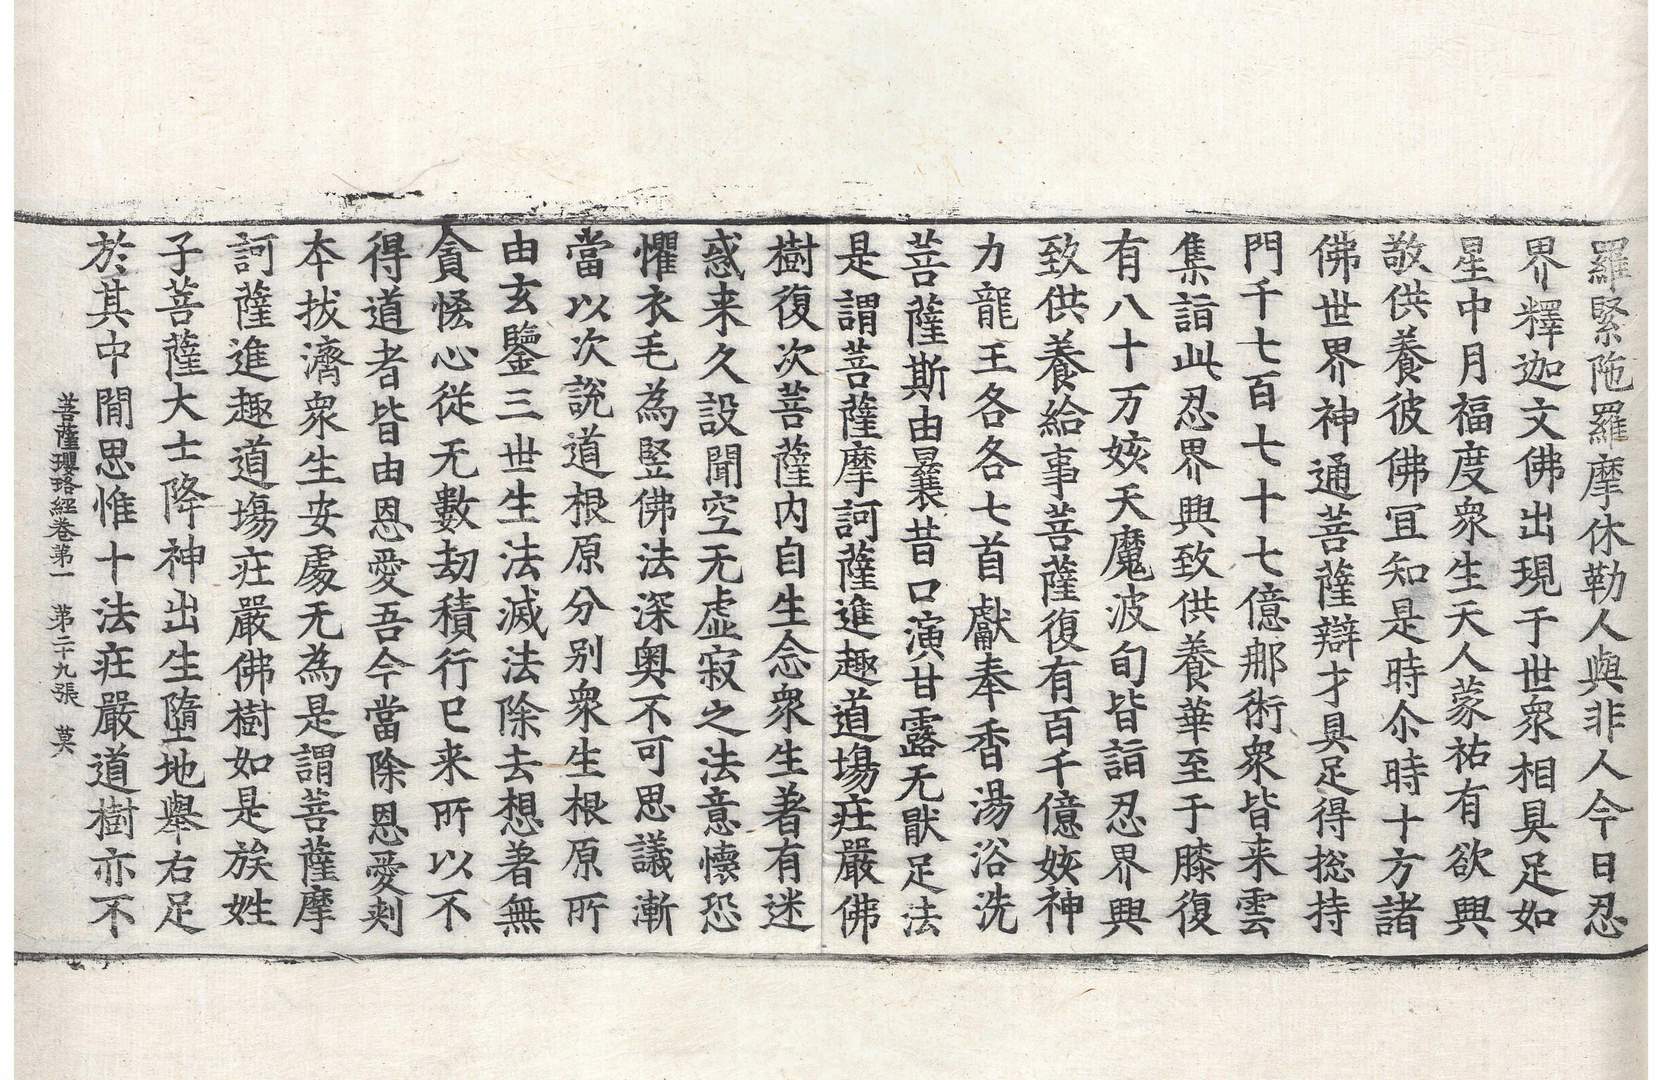 羅緊陁羅摩休勒人與非人今日忍
界釋迦文佛出現于世衆相具足如
星中月福度衆生天人蒙祐有欲興
敬供養彼佛冝知是時尒時十方諸
佛世界神通菩薩辯才具足得捴持
門千七百七十七億那術衆皆来雲
集詣此忍界興致供養華至于膝復
有八十万姟天魔波旬皆詣忍界興
致供養給事菩薩復有百千億姟神
力龍王各各七首獻奉香湯浴洗
菩薩斯由曩昔口演甘露无猒足法
是謂菩薩摩訶薩進趣道塲莊嚴佛
樹復次菩薩内自生念衆生著有迷
惑来久設聞空无虚寂之法意懷恐
懼衣毛為竪佛法深奥不可思議漸
當以次說道根原分别衆生根原所
由玄鑒三世生法滅法除去想著無
貪悋心從无數劫積行已来所以不
得道者皆由恩愛吾今當除恩愛刾
本拔濟衆生安處无為是謂菩薩摩
訶薩進趣道塲莊嚴佛樹如是族姓
子菩薩大士降神出生墮地舉右足
於其中間思惟十法莊嚴道樹亦不
菩薩瓔珞經卷第一　第二十九張　莫